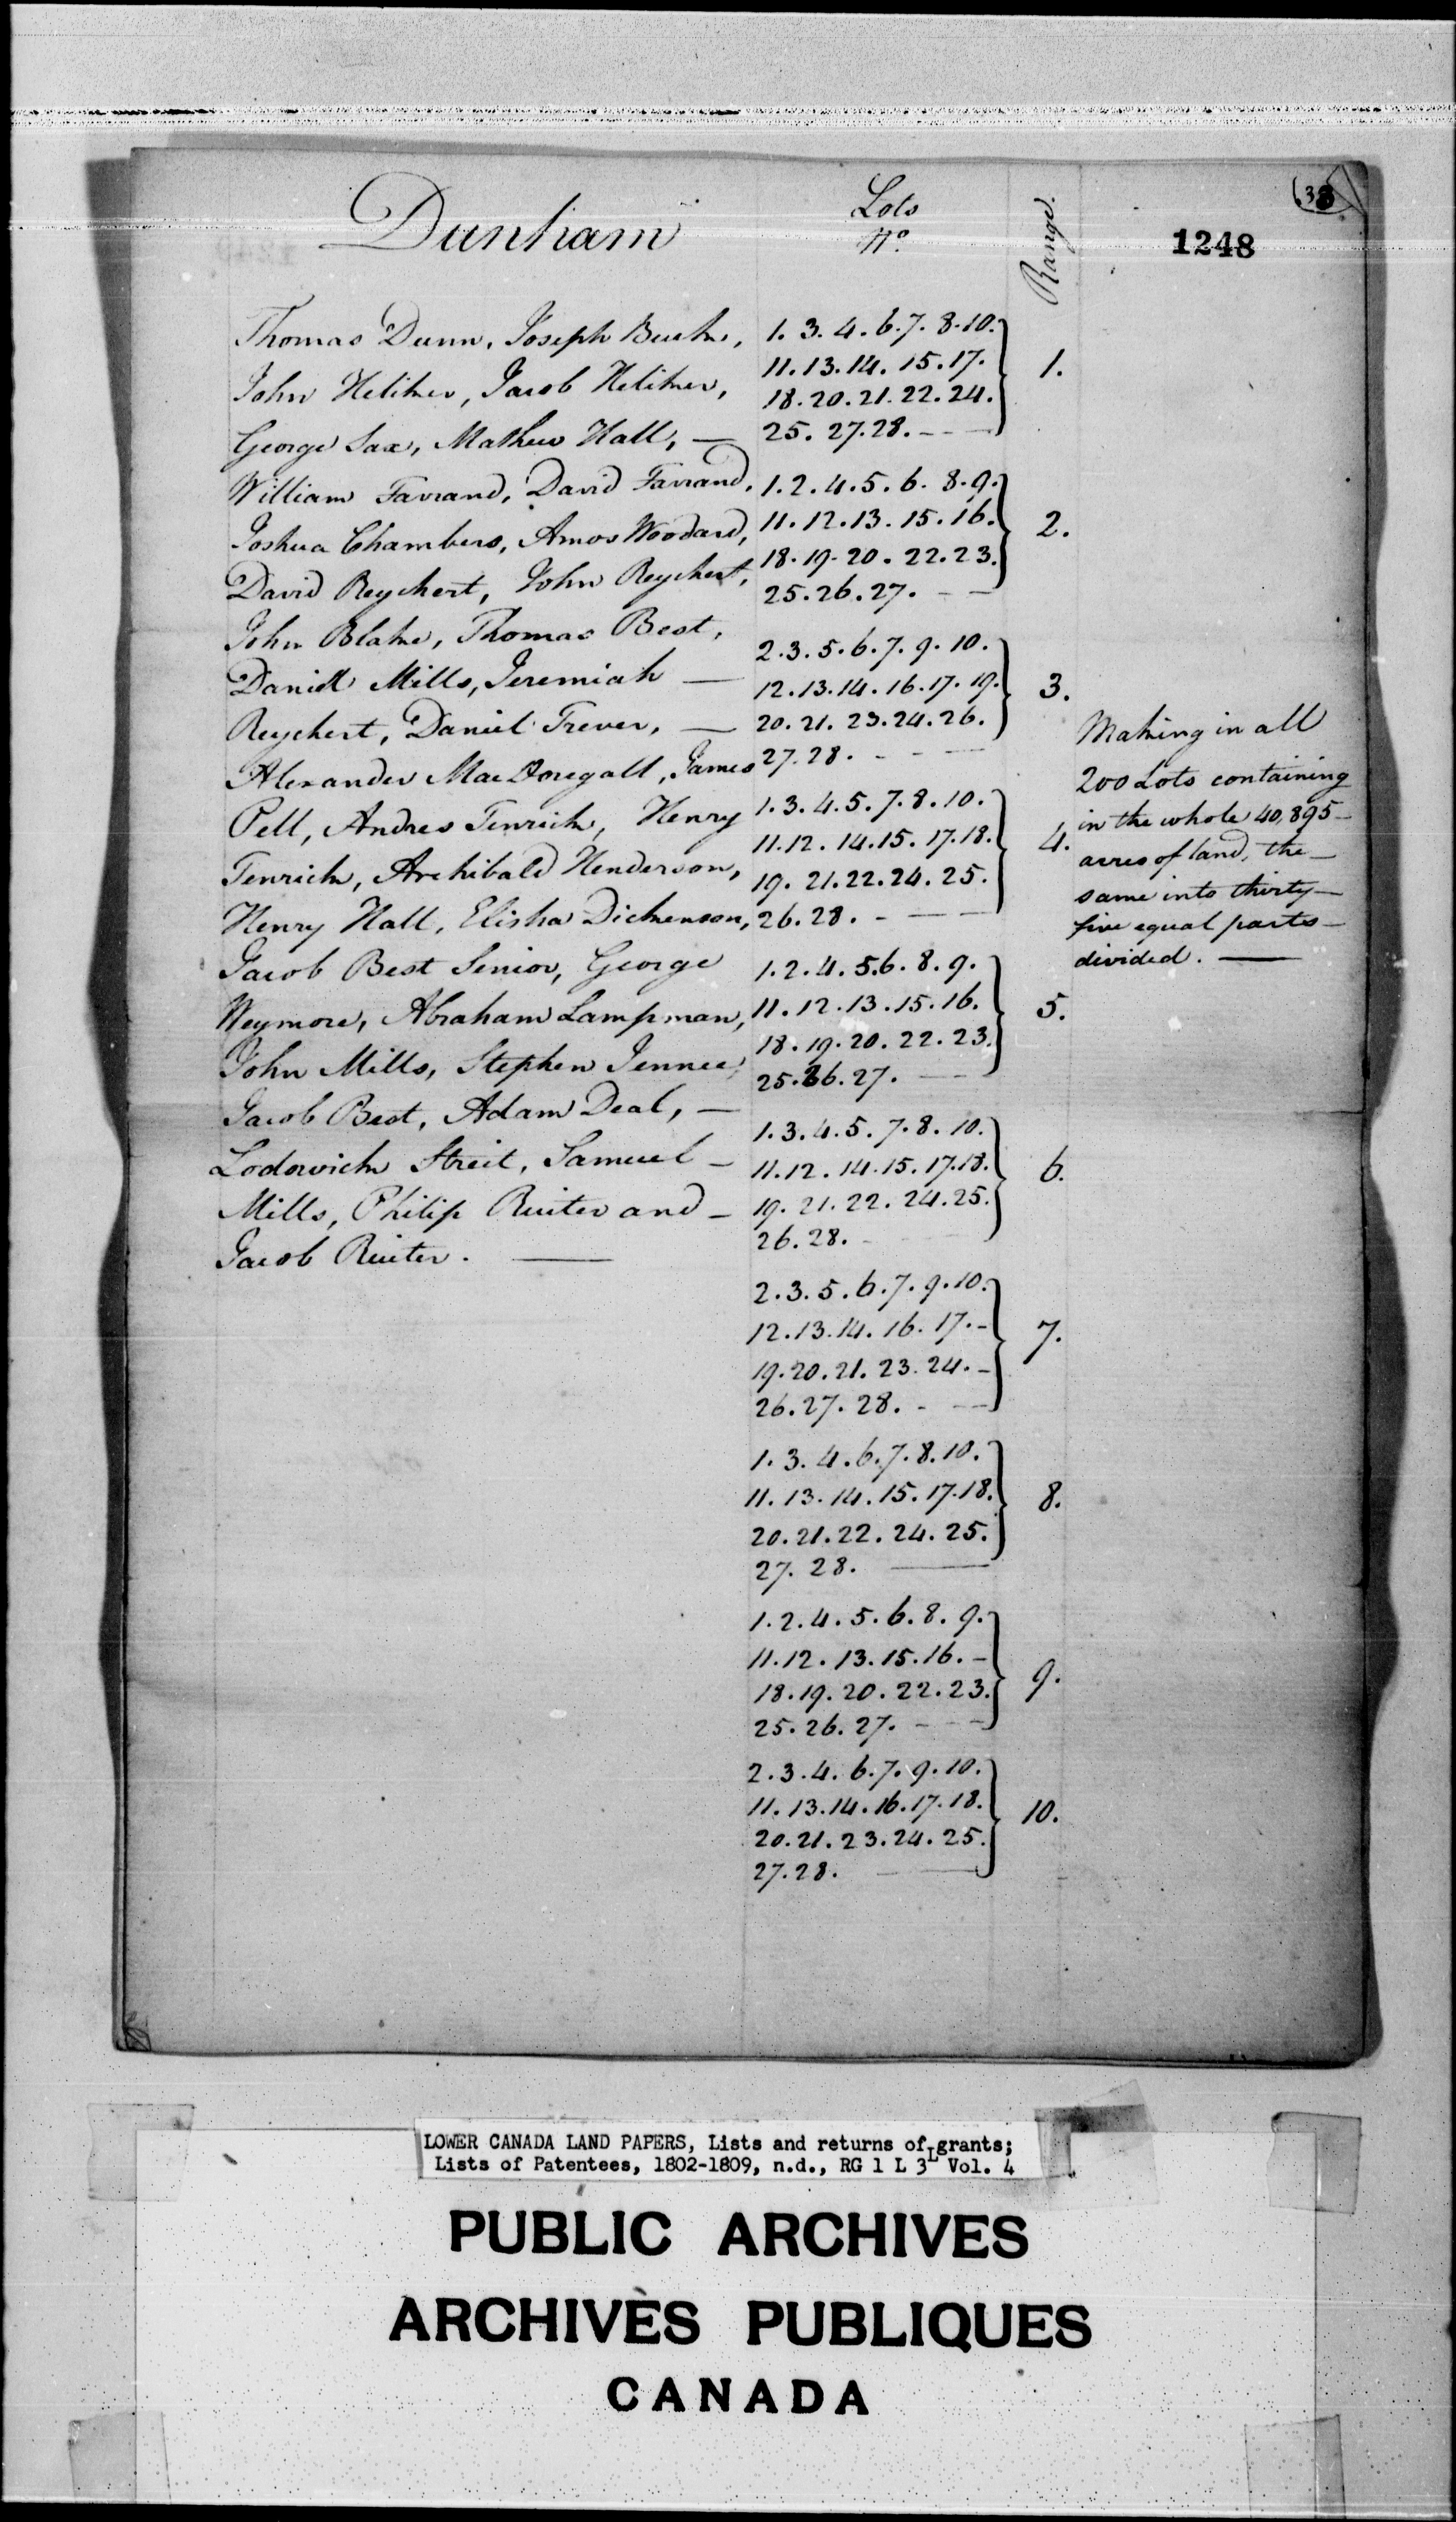 Dunham
Lots
No.
Range.
38
1248
Thomas Dunn, Joseph Buck,
John Hiliker, Jacob Hiliker,
George Sax, Mathew Hall, —
William Farrand, David Farrand,
Joshua Chambers, Amos Woodard,
David Reychert, John Reychert,
John Blake, Thomas Best,
Daniel Mills, Jeremiah —
Reychert, Daniel Trever, —
Alexander MacDougall, James
Pell, Andres Tenrick, Henry
Tenrick, Archibald Henderson,
Henry Hall, Elisha Dickenson,
Jacob Best Senior, George
Neymore, Abraham Lampman,
John Mills, Stephen Jenner,
Jacob Best, Adam Deal, —
Lodowick Streit, Samuel —
Mills, Philip Ruiter and —
Jacob Ruiter. —
1. 3. 4. 6. 7. 8. 10.
11. 13. 14. 15. 17.
18. 20. 21. 22. 24.
25. 27. 28. - - —
1.
1. 2. 4. 5. 6. 8. 9.
11. 12. 13. 15. 16.
18. 19. 20. 22. 23.
25. 26. 27. - —
2.
2. 3. 5. 6. 7. 9. 10.
12. 13. 14. 16. 17. 19.
20. 21. 23. 24. 26.
27. 28. - - —
3.
1. 3. 4. 5. 7. 8. 10.
11. 12. 14. 15. 17. 18.
19. 21. 22. 24. 25.
26. 28. - — —
4.
1. 2. 4. 5. 6. 8. 9.
11. 12. 13. 15. 16.
18. 19. 20. 22. 23.
25. 26. 27. —
5.
1. 3. 4. 5. 7. 8. 10.
11. 12. 14. 15. 17. 18.
19. 21. 22. 24. 25.
26. 28. -
6.
2. 3. 5. 6. 7. 9. 10.
12. 13. 14. 16. 17. -
19. 20. 21. 23. 24. -
26. 27. 28. - —
7.
1. 3. 4. 6. 7. 8. 10.
11. 13. 14. 15. 17. 18.
20. 21. 22. 24. 25.
27. 28. —
8.
1. 2. 4. 5. 6. 8. 9.
11. 12. 13. 15. 16. -
18. 19. 20. 22. 23.
25. 26. 27. - —
9.
2. 3. 4. 6. 7. 9. 10.
11. 13. 14. 16. 17. 18.
20. 21. 23. 24. 25.
27. 28. — —
10.
Making in all
200 Lots containing
in the whole 40,895 —
acres of land, the —
same into thirty —
five equal parts —
divided. —
LOWER CANADA LAND PAPERS, Lists and returns of grants;
Lists of Patentees, 1802-1809, n.d., RG 1 L 3L Vol. 4
PUBLIC ARCHIVES
ARCHIVES PUBLIQUES
CANADA